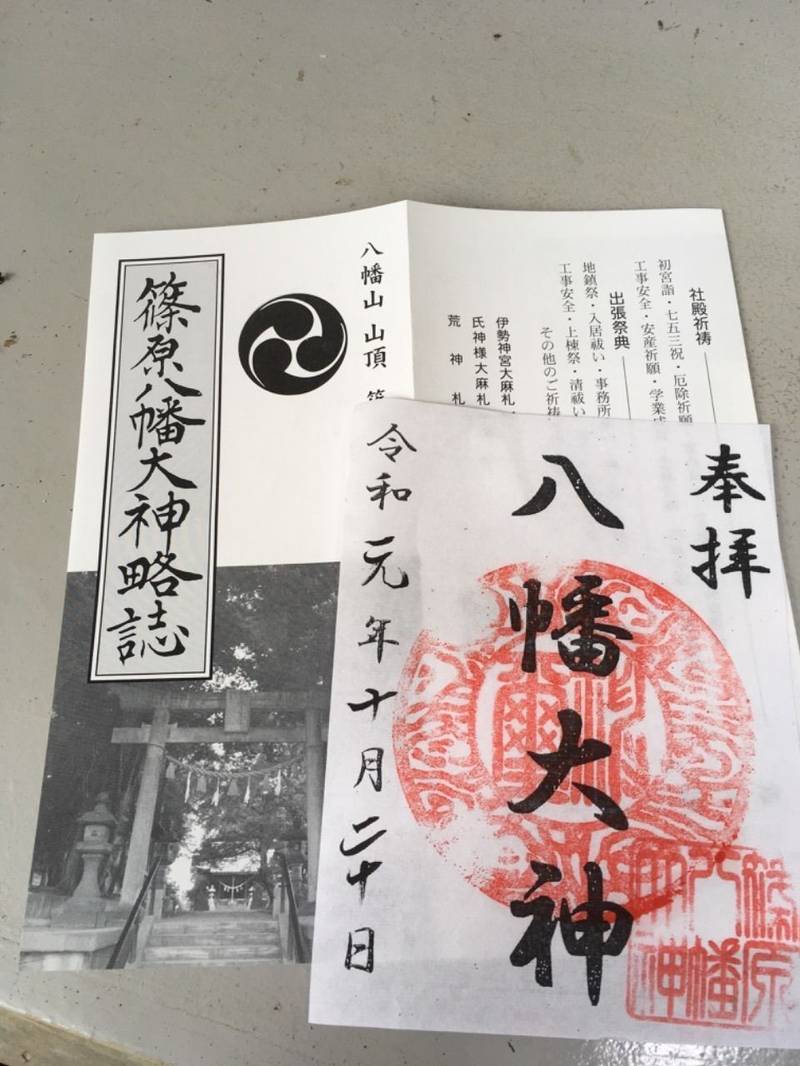 社殿祈祷
初宮詣・七五三祝・厄除祈願
工事安全・安産祈願・学業成
出張祭典
地鎮祭・入居祓い・事務所
工事安全・上棟祭・清祓い
その他のご祈祷
伊勢神宮大麻札
氏神様大麻札
荒神札
八幡山 山頂
篠原八幡大神略誌
奉拝
八幡大神
令和元年十月二十日
篠原
八幡
大神